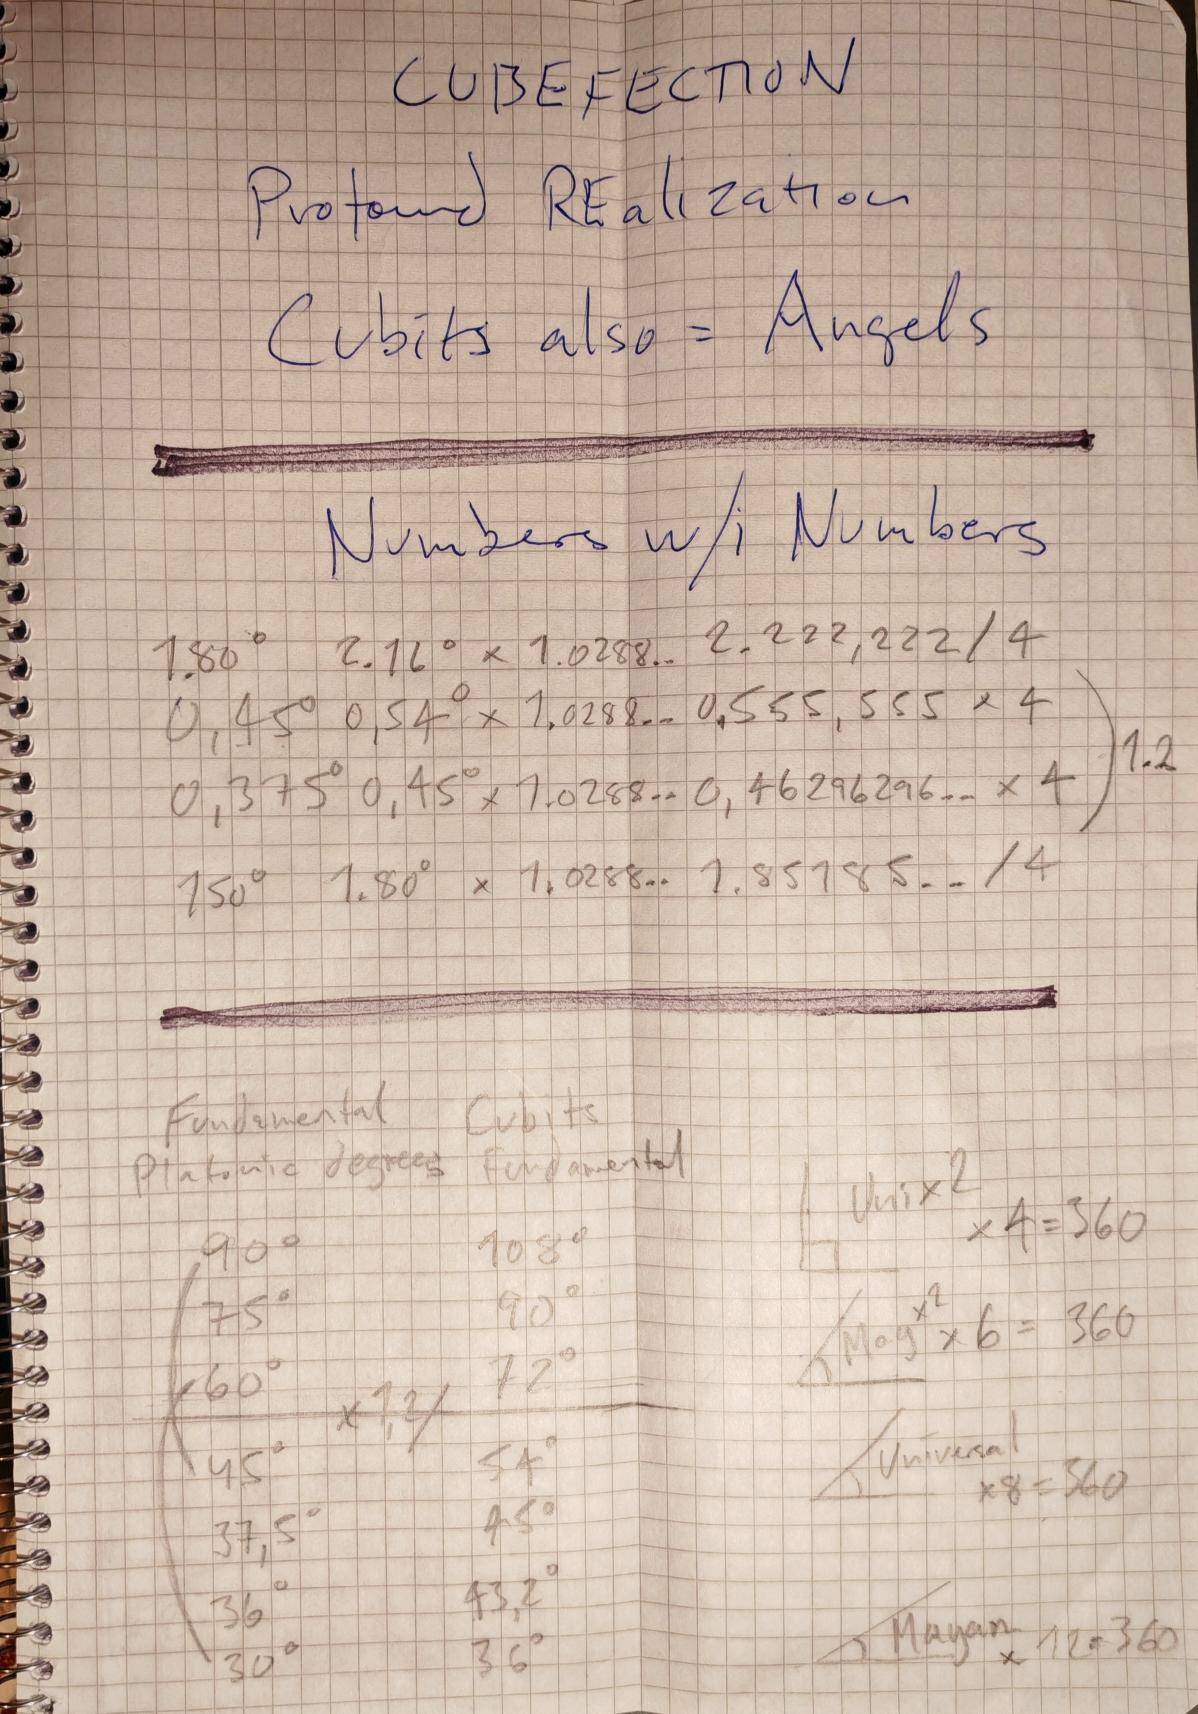 CUBEFECTION
Profound REalization
Cubits also = Angels
Numbers w/i Numbers
1.80° 2.16° × 1.0288.. 2.222,222/4
0,45° 0,54° × 1.0288... 0,555,555 × 4
0,375° 0,45° × 1.0288.. 0,46296296... × 4
) 1.2
150° 1.80° × 1.0288.. 1.85185... /4
Fundamental Cubits
Platonic degrees Fundamental
90° 108°
75° 90°
60° 72°
× 1,2/
45° 54°
37,5° 45°
36° 43,2°
30° 36°
Uni x2
×4=360
May x2 ×6 = 360
Universal
×8=360
Mayan
× 12=360